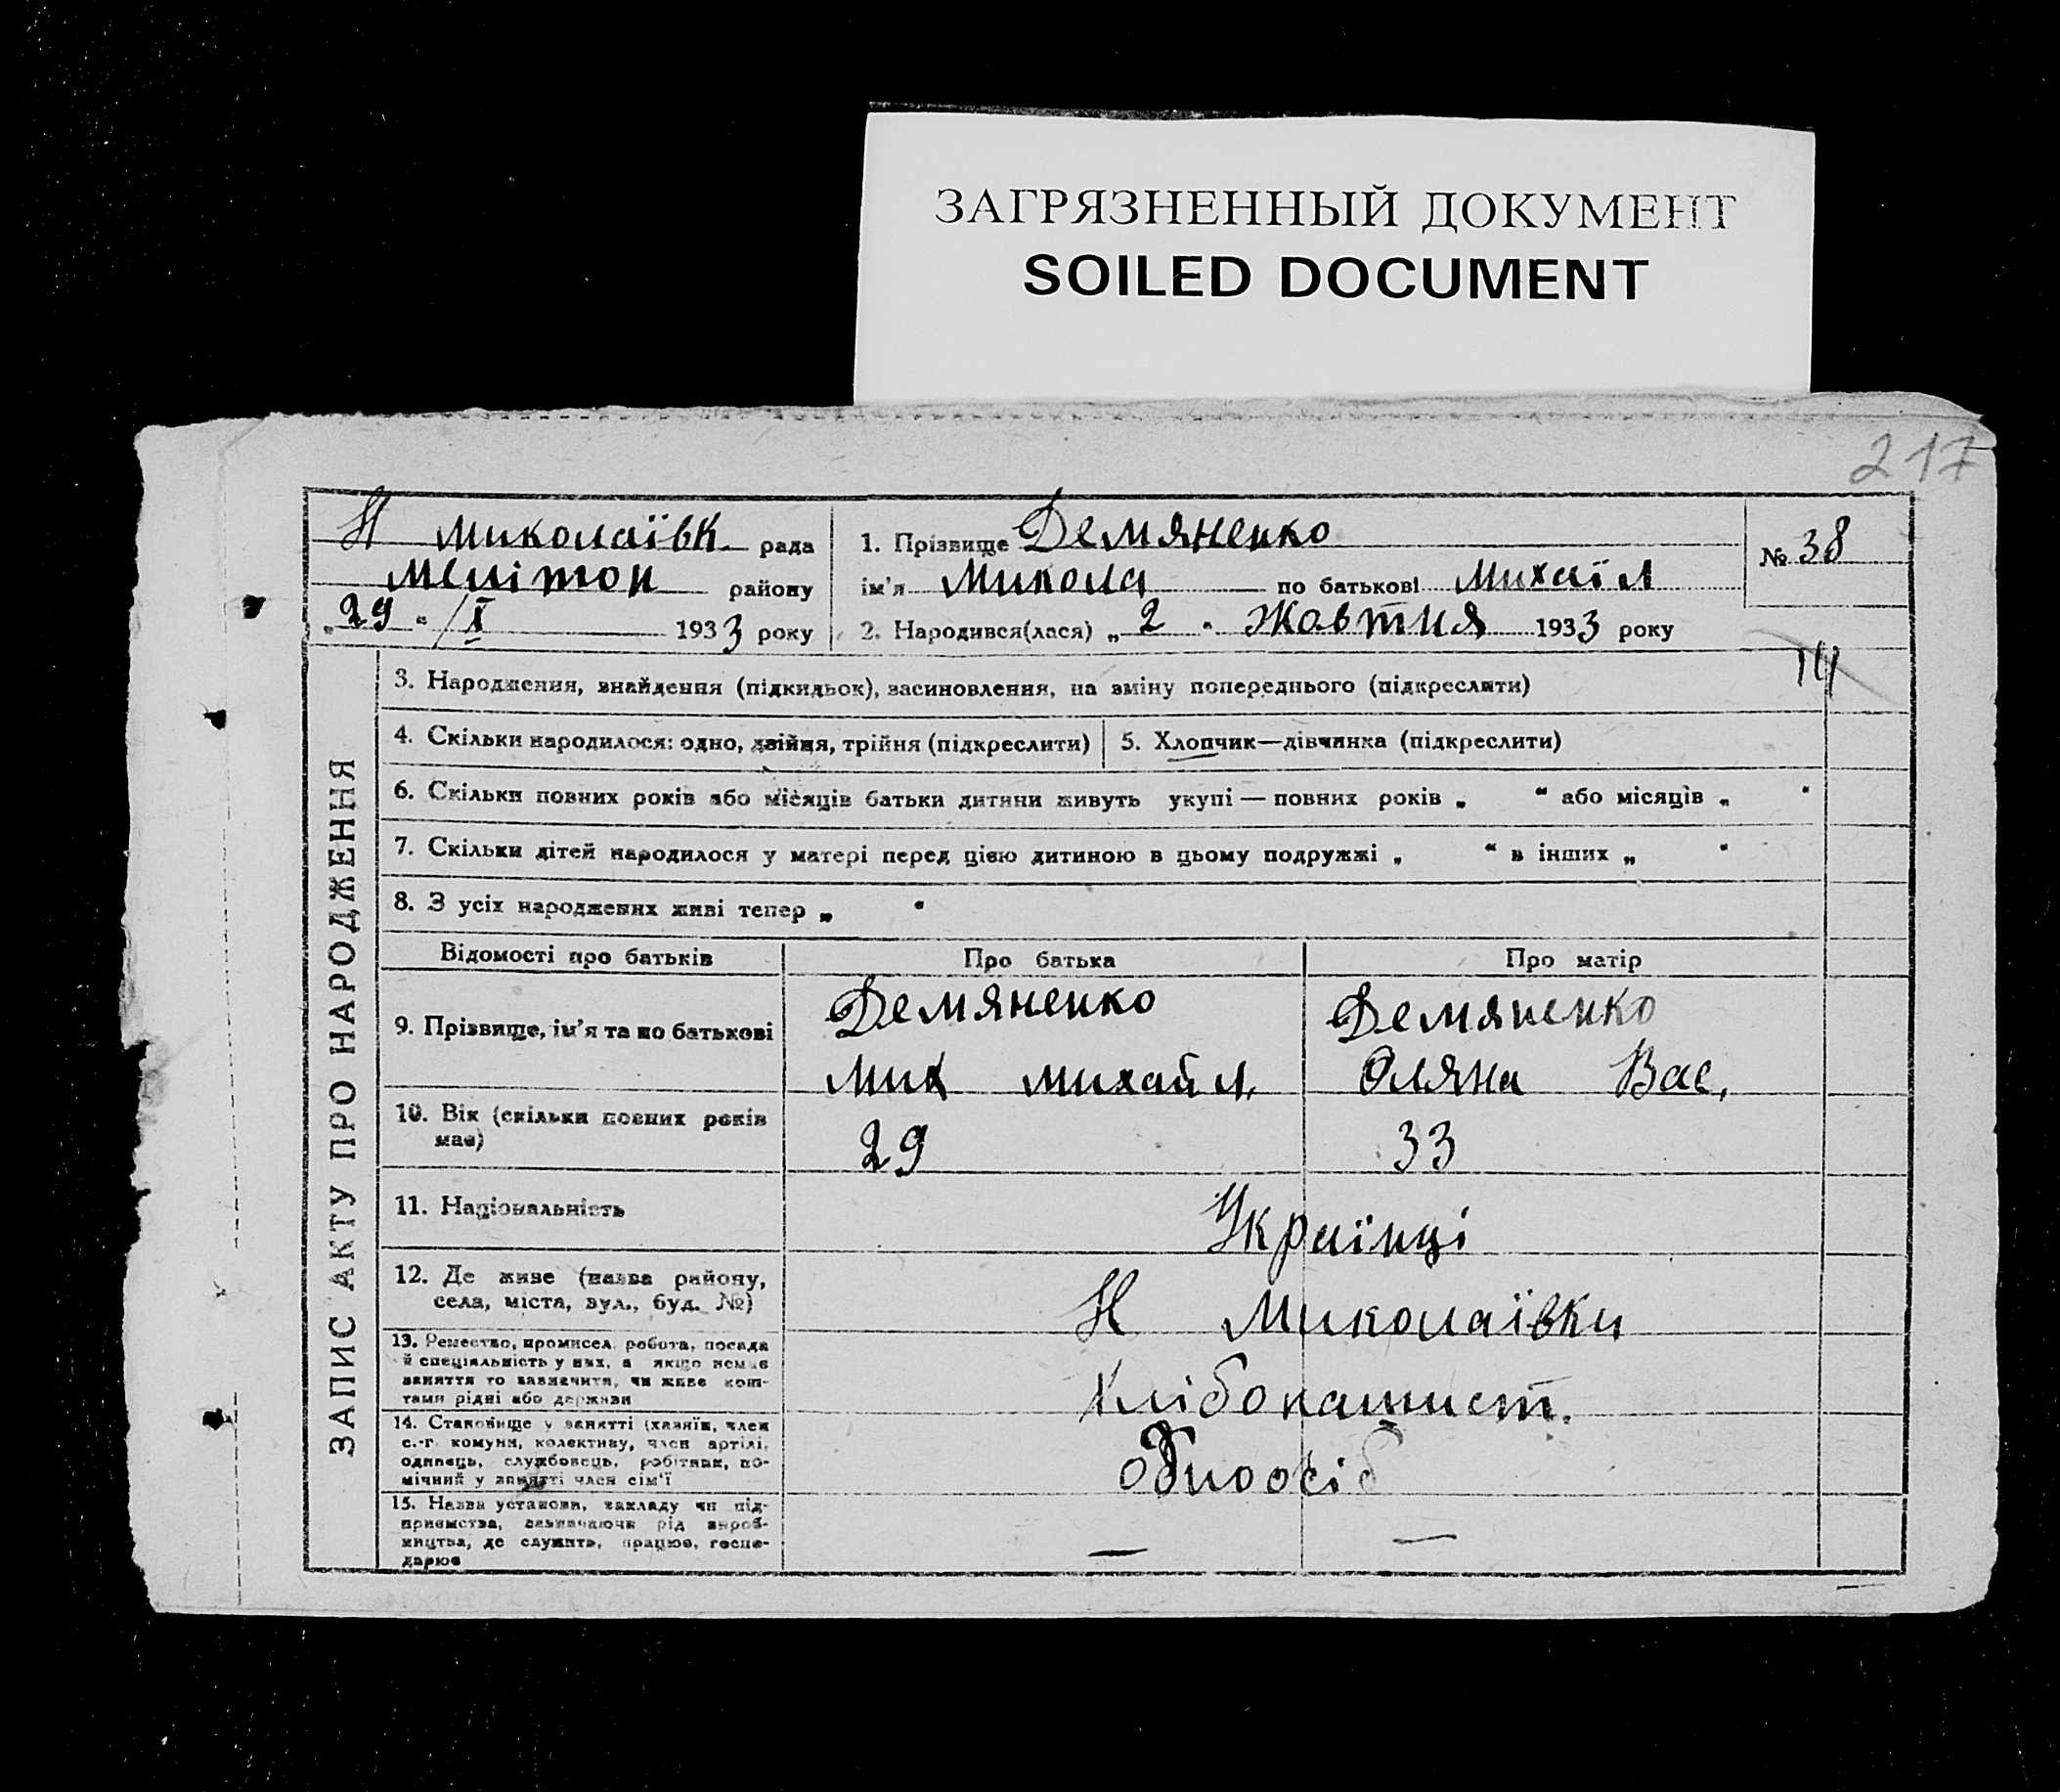 ЗАГРЯЗНЕННЫЙ ДОКУМЕНТ
SOILED DOCUMENT
217
ЗАПИС АКТУ ПРО НАРОДЖЕННЯ
Н Миколаївк. рада
Меліток району
"29" /X 1933 року
1. Прізвище Демяненко
ім'я Микола по батькові Михаїл
2. Народився(лася) „2" Жовтня 1933 року
№ 38
14
3. Народження, знайдення (підкидьок), засиновлення, на зміну попереднього (підкреслити)
4. Скільки народилося: одно, двійня, трійня (підкреслити)
5. Хлопчик—дівчинка (підкреслити)
6. Скільки повних років або місяців батьки дитини живуть укупі — повних років „ “ або місяців „ “
7. Скільки дітей народилося у матері перед цією дитиною в цьому подружжі „ “ в інших „ “
8. З усіх народжених живі тепер „ “
Відомості про батьків Про батька Про матір
9. Прізвище, ім'я та по батькові
Демяненко
Мих михайл.
Демяненко
Оляна Вас.
10. Вік (скільки повних років
має)
29 33
11. Національність
Українці
12. Де живе (назва району,
села, міста, вул., буд. №)
Н Миколаївки
13. Ремество, промисел, робота, посада
й спеціяльність у них, а якщо немає
заняття то зазначити, чи живе кош-
тами рідні або держави
Хлібопашист.
14. Становище у занятті (хазяїн, член
с.-г. комуни, колективу, член артілі,
одинець, службовець, робітник, по-
мічний у занятті член сім'ї
одноосіб
15. Назва установи, закладу чи під-
приємства, зазначаючи рід вироб-
ництва, де служить, працює, госпо-
дарює
— —